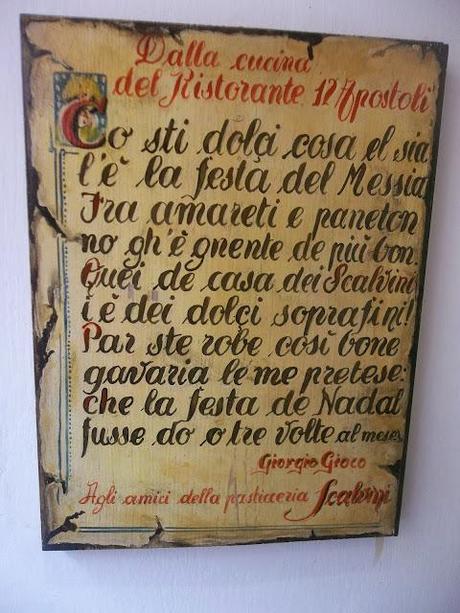 Dalla cucina
del Ristorante 12 Apostoli
Co sti dolçi cosa el sia
l'è la festa del Messia
Fra amareti e paneton
no gh'è gnente de più bon.
Quei de casa dei Scalvini
i è dei dolci soprafini!
Par ste robe così bone
gavaria le me pretese:
che la festa de Nadal
fusse do o tre volte al mese.
Giorgio Gioco
Agli amici della pasticceria Scalvini